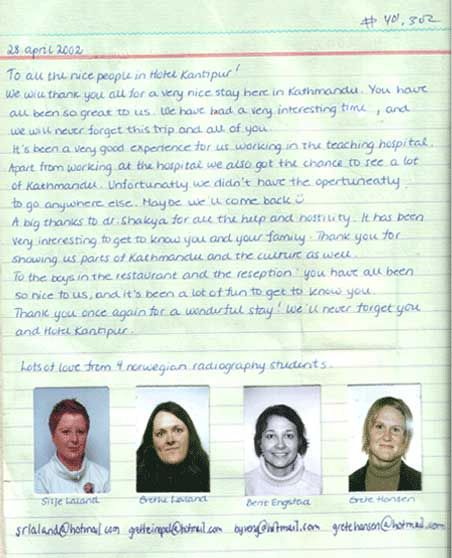 # 401, 302
28 april 2002
To all the nice people in Hotel Kantipur!
We will thank you all for a very nice stay here in Kathmandu. You have
all been so great to us. We have had a very interesting time, and
we will never forget this trip and all of you.
It's been a very good experience for us working in the teaching hospital.
Apart from working at the hospital we also got the chance to see a lot
of Kathmandu. Unfortunatly we didn't have the opertuneatly
to go anywhere else. Maybe we'll come back ☺
A big thanks to dr. Shakya for all the help and hostility. It has been
very interesting to get to know you and your family. Thank you for
showing us parts of Kathmandu and the culture as well.
To the boys in the restaurant and the reseption: you have all been
so nice to us, and it's been a lot of fun to get to know you.
Thank you once again for a wonderful stay! We'll never forget you
and Hotel Kantipur.
Lots of love from 4 norwegian radiography students.
Silje Løland Grethe Berit Engstad Grete Hansen
srlaland@hotmail.com @hotmail.com @hotmail.com gretehansen@hotmail.com